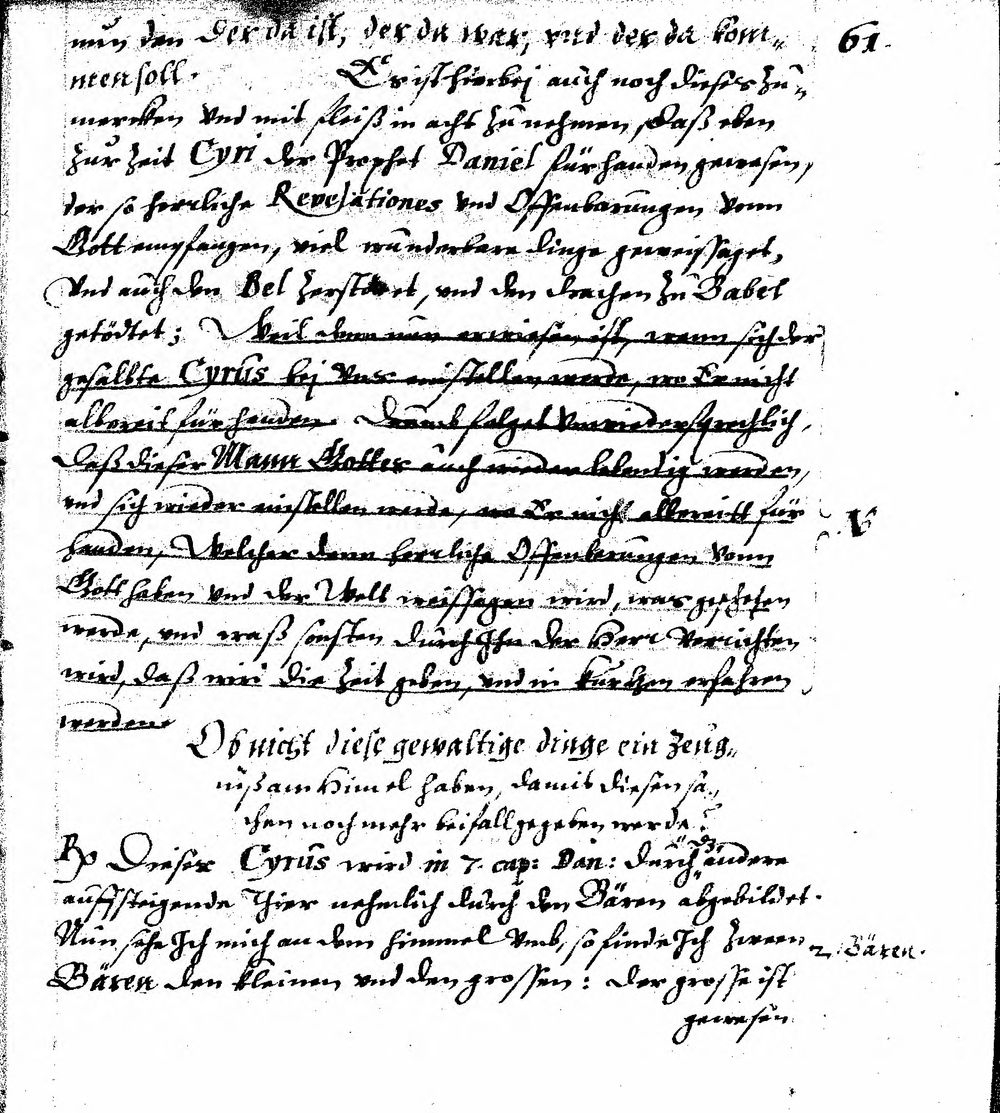 nun den Der da ist, der da war, und der da kom„
men soll. Es ist hierbej auch noch dieses zu„
mercken Vnd mit fleiß in acht zu nehmen, Daß eben
zur Zeit Cyri der Prophet Daniel fürhanden gewesen,
der so herrliche Revelationes vnd Offenbarungen vonn
Gott empfangen, viel wunderbare dinge geweissaget,
Vnd auch den Bel zerstöret, vnd den drachen zu Babel
getödtet; Weil denn nun erwiesen ist, wenn sich der
gesalbte Cyrus bej Vns einstellen werde, wo Er nicht
albereit fürhanden. Drumb folget Vnwiedersprechlich,
Daß dieser Mann Gottes auch wieder lebendig werden,
vnd sich wieder einstellen werde, wo Er nicht albereitt für
handen, Welcher denn herrliche Offenbarungen Vonn
Gott haben vnd der Welt weissagen wird, was geschehen
werde, vnd waß sonsten durch Ihn der Herr Verrichten
wird, daß wird die Zeit geben, vnd in kurtzen erfahren
werden.
Ob nicht diese gewaltige dinge ein Zeug„
nüß am Himel haben, damit diesen sa„
chen noch mehr beifall gegeben werde?
Rp Dieser Cyrus wird in 7. cap: Dan: durch dz andere
auffsteigende Thier nehmlich durch den Bären abgebildet.
Nun sehe Ich mich an dem Himmel Vmb, so finde Ich zween
2. Bären.
Bären den kleinen vnd den grossen: der grosse ist
gewesen
61.